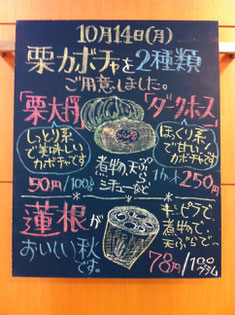 10月14日(月)
栗カボチャを2種類
ご用意しました。
「栗大将」
「ダークホース」
しっとり系
で美味しい
カボチャです
ほっくり系
で甘い!
カボチャです
煮物、天ぷら
シチューなど
50円/100g
1ヶ 250円
蓮根が
おいしい秋
です。
キンピラで、
煮物で、
天ぷらで…
78円/100
グラム